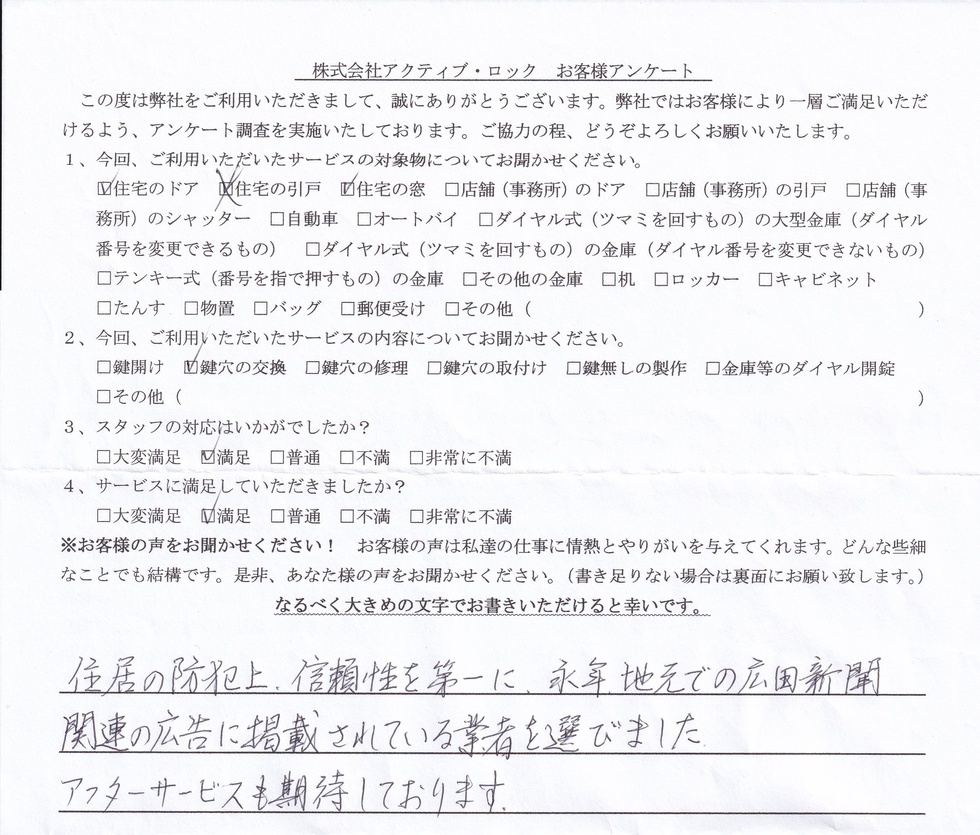 株式会社アクティブ・ロック　お客様アンケート
この度は弊社をご利用いただきまして、誠にありがとうございます。弊社ではお客様により一層ご満足いただ
けるよう、アンケート調査を実施いたしております。ご協力の程、どうぞよろしくお願いいたします。
１、今回、ご利用いただいたサービスの対象物についてお聞かせください。
☑住宅のドア　☑住宅の引戸　☑住宅の窓　□店舗（事務所）のドア　□店舗（事務所）の引戸　□店舗（事
務所）のシャッター　□自動車　□オートバイ　□ダイヤル式（ツマミを回すもの）の大型金庫（ダイヤル
番号を変更できるもの）　□ダイヤル式（ツマミを回すもの）の金庫（ダイヤル番号を変更できないもの）
□テンキー式（番号を指で押すもの）の金庫　□その他の金庫　□机　□ロッカー　□キャビネット
□たんす　□物置　□バッグ　□郵便受け　□その他（　　　）
２、今回、ご利用いただいたサービスの内容についてお聞かせください。
□鍵開け　☑鍵穴の交換　□鍵穴の修理　□鍵穴の取付け　□鍵無しの製作　□金庫等のダイヤル開錠
□その他（　　　）
３、スタッフの対応はいかがでしたか？
□大変満足　☑満足　□普通　□不満　□非常に不満
４、サービスに満足していただきましたか？
□大変満足　☑満足　□普通　□不満　□非常に不満
※お客様の声をお聞かせください！　お客様の声は私達の仕事に情熱とやりがいを与えてくれます。どんな些細
なことでも結構です。是非、あなた様の声をお聞かせください。（書き足りない場合は裏面にお願い致します。）
なるべく大きめの文字でお書きいただけると幸いです。
住居の防犯上、信頼性を第一に、永年地元での広田新聞
関連の広告に掲載されている業者を選びました
アフターサービスも期待しております。